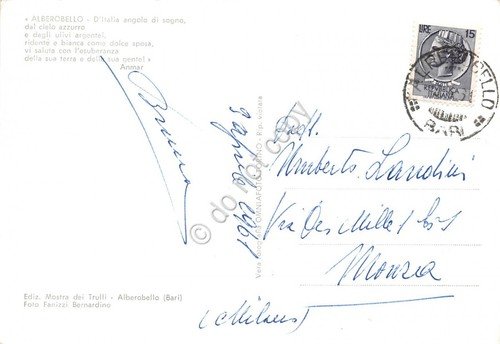 « ALBEROBELLO - D'Italia angolo di sogno,
dal cielo azzurro
e dagli ulivi argentei,
ridente e bianca come dolce sposa,
vi saluta con l'esuberanza
della sua terra e della sua gente! »
Anmar
LIRE 15
ALBEROBELLO
BARI
Bruna
9 aprile 1961
Vera Fotografia
Rip. vietata
© do not copy
Dott.
Umberto Landini
Via Dei Mille
Monza
(Milano)
Ediz. Mostra dei Trulli - Alberobello (Bari)
Foto Fanizzi Bernardino